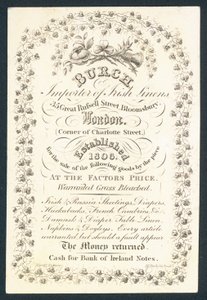 BURCH
Importer of Irish Linens
Great Russell Street Bloomsbury
London.
(Corner of Charlotte Street,)
Established
1806.
for the sale of the following goods by the piece
AT THE FACTORS PRICE.
Warranted Grass Bleached.
Irish & Russia Sheetings, Diapers,
Huckabacks, French Cambrics &c.
Damask & Diaper Table Linen,
Napkins & Doyleys, Every article
warranted but should a fault appear
The Money returned
Cash for Bank of Ireland Notes.